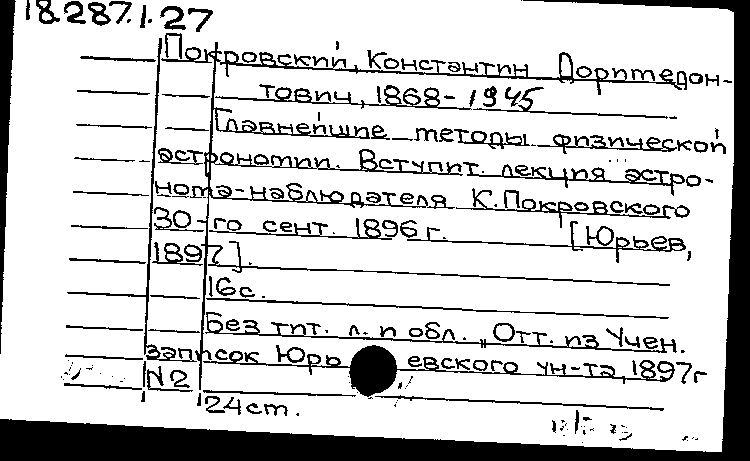 18.287.1.27
Покровский, Константин Доримедон-
тович, 1868-1945
Главнейшие методы физической
астрономии. Вступит. лекция астро-
нома-наблюдателя К.Покровского
30-го сент. 1896 г. [Юрьев,
1897].
16с.
Без тит. л. и обл. „Отт. из Учен.
записок Юрьевского ун-та, 1897г
N2
24ст.